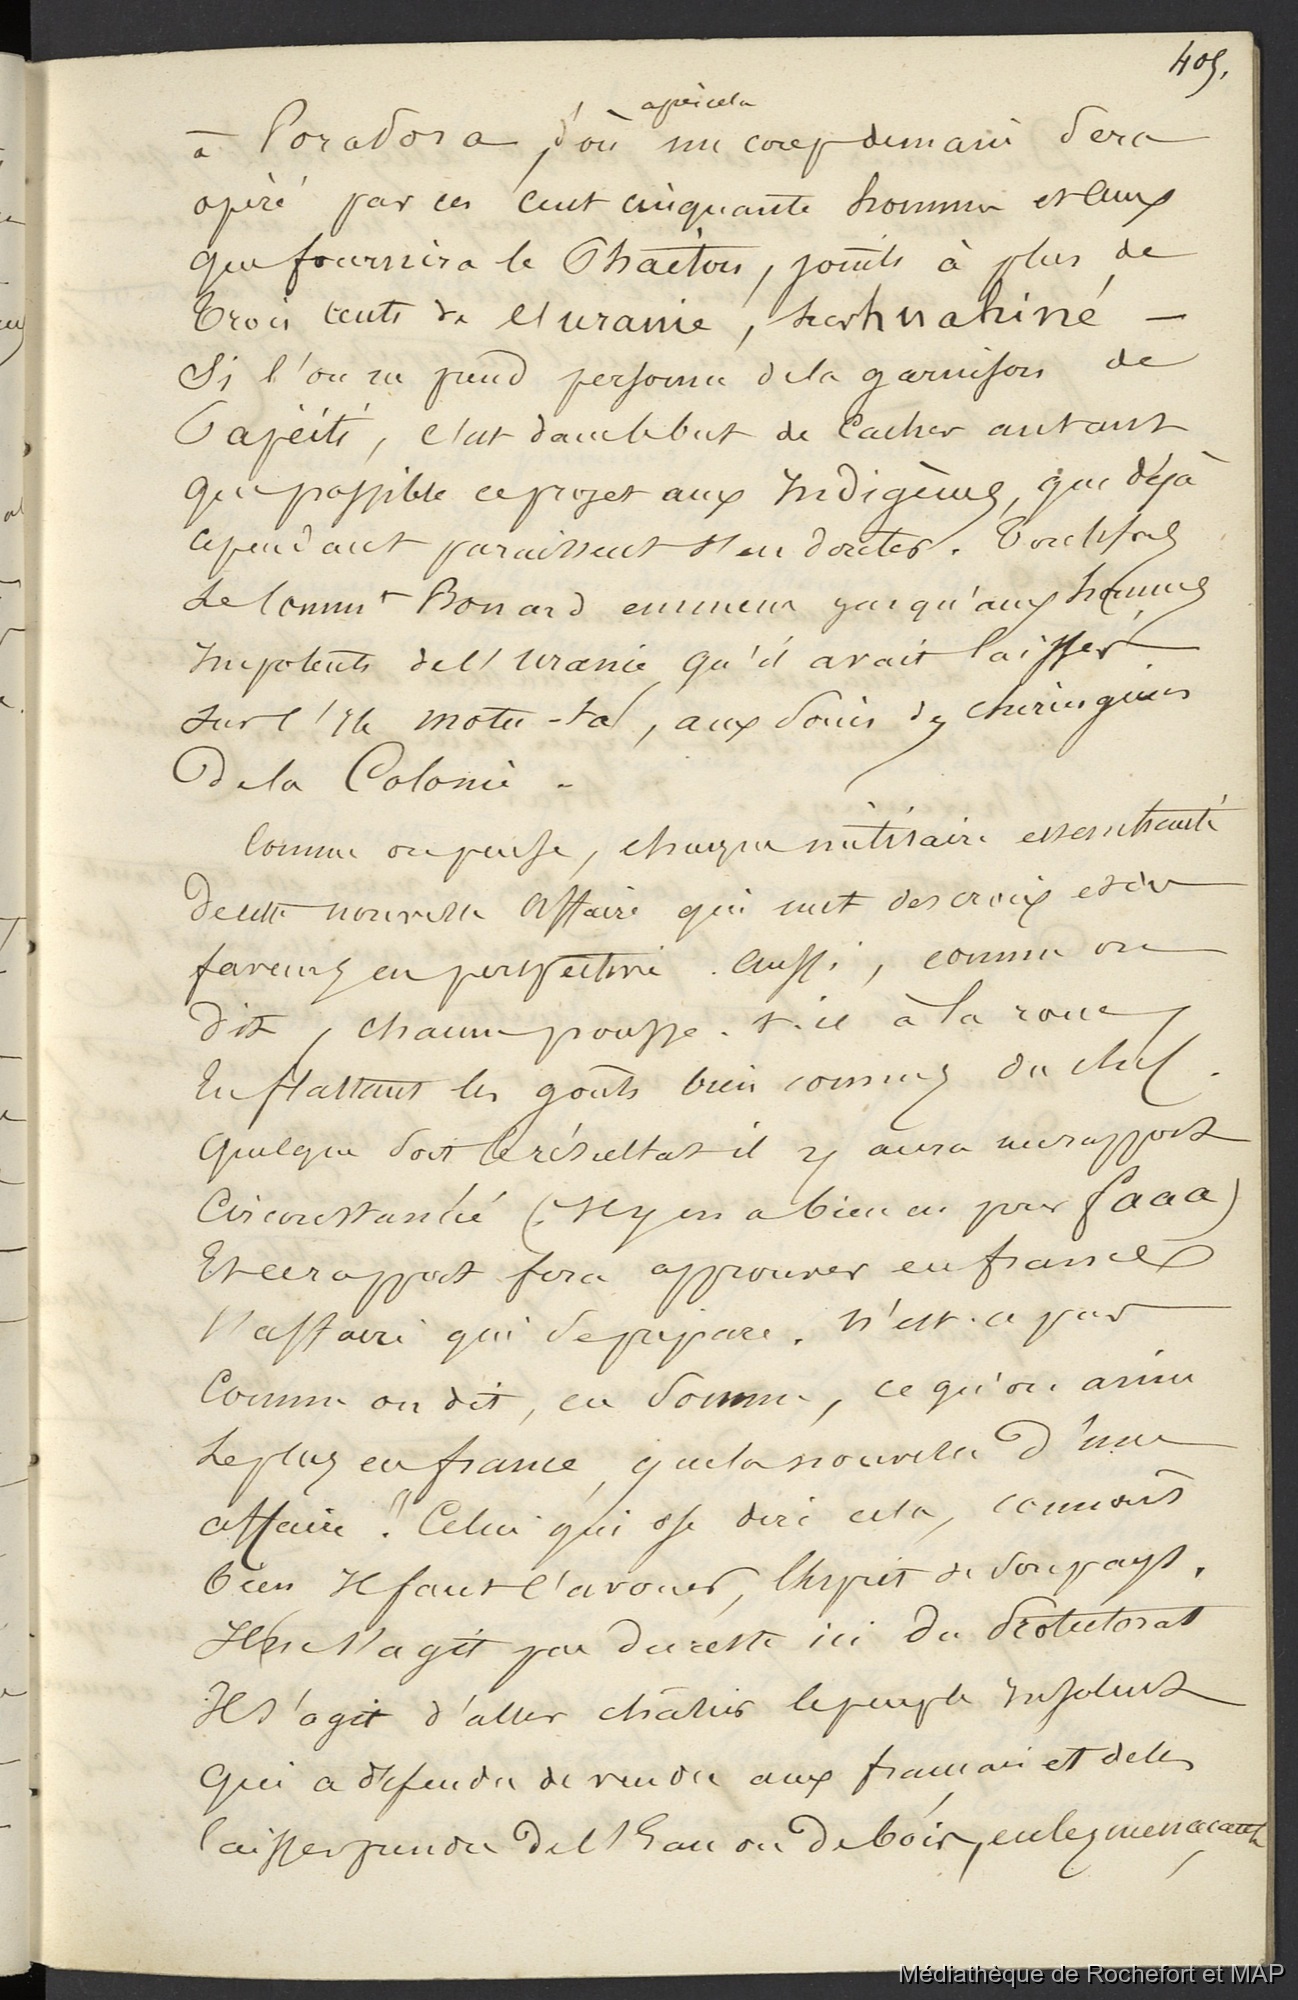 405.
après cela
à Boradora, d'où un coup de main sera
opéré par ces cent cinquante hommes et ceux
que fournira le Phaéton, joints à plus de
trois cents de l'uranie, sur huahiné –
Si l'on ne prend personne de la garnison de
Papéiti, c'est dans le but de cacher autant
que possible ce projet aux Indigènes, qui déjà
cependant paraissent s'en douter. Toutefois
Le Commt Bonard emmène jusqu'aux hommes
Impotents de l'uranie qu'il avait laissés
sur l'Ile motu-ta, aux soins des chirurgiens
De la Colonie.
Comme on pense, chaque militaire est enchanté
de cette nouvelle affaire qui met des croix et des
faveurs en perspective. aussi, comme on
dit, chacun pousse-t-il à la roue
En flattant les goûts bien connus du chef.
Quelque soit le résultat il y aura un rapport
Circonstancié (Il y en a bien eu pour faaa)
Et ce rapport fera approuver en france
l'affaire qui se prépare. N'est-ce pas
Comme on dit, en somme, ce qu'on aime
Le plus en france, que la nouvelle d'une
affaire ? Celui qui ose dire cela, connait
bien Il faut l'avouer, l'esprit de son pays.
Il ne s'agit pas du reste ici du Protectorat
Il s'agit d'aller châtier le peuple Insolent
Qui a défendu de vendre aux français et de les
laisser prendre de l'Eau ou du bois, en les menaçant
Médiathèque de Rochefort et MAP